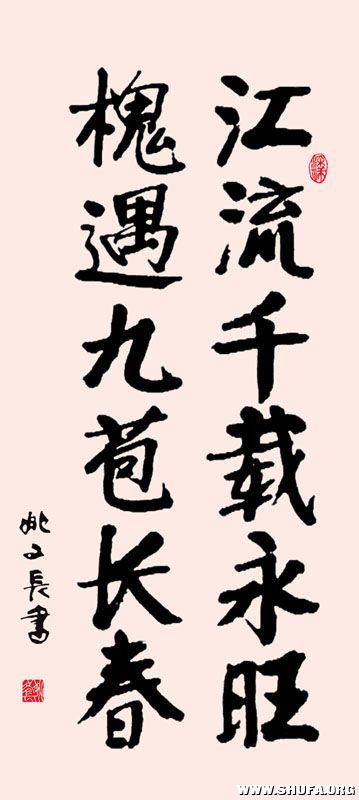 江流千载永旺
槐遇九苞长春
文長書
WWW.SHUFA.ORG